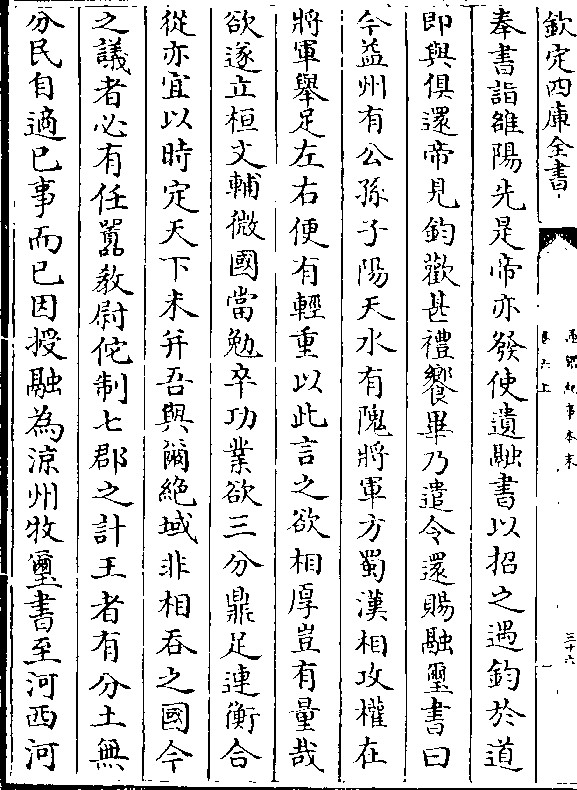 欽定四庫全書
通鑑紀事本末
卷六上
三十六
奉書詣雒陽先是帝亦發使遺融書以招之遇鈞於道
即與俱還帝見鈞歡甚禮饗畢乃遣令還賜融璽書曰
今益州有公孫子陽天水有隗將軍方蜀漢相攻權在
將軍舉足左右便有輕重以此言之欲相厚豈有量哉
欲遂立桓文輔微國當勉卒功業欲三分鼎足連衡合
從亦宜以時定天下未并吾與爾絶域非相吞之國今
之議者必有任囂教尉佗制七郡之計王者有分土無
分民自適已事而已因授融為涼州牧璽書至河西河